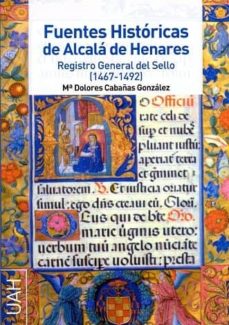 Fuentes Históricas
de Alcalá de Henares
Registro General del Sello
(1467-1492)
Mª Dolores Cabañas González
Officiu
de sup et nubel
pluant iustum
aperiatur terra et
germinet salvatorem
simul: ego dñs creavi eum. Glori
Deus qui de btē Oro
marie virginis utero:
verbum tuū angelo nūciāte
carnē suscipe voluisti: presta
UAH